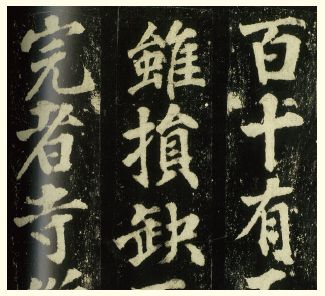 百十有
雖損缺
完者寺